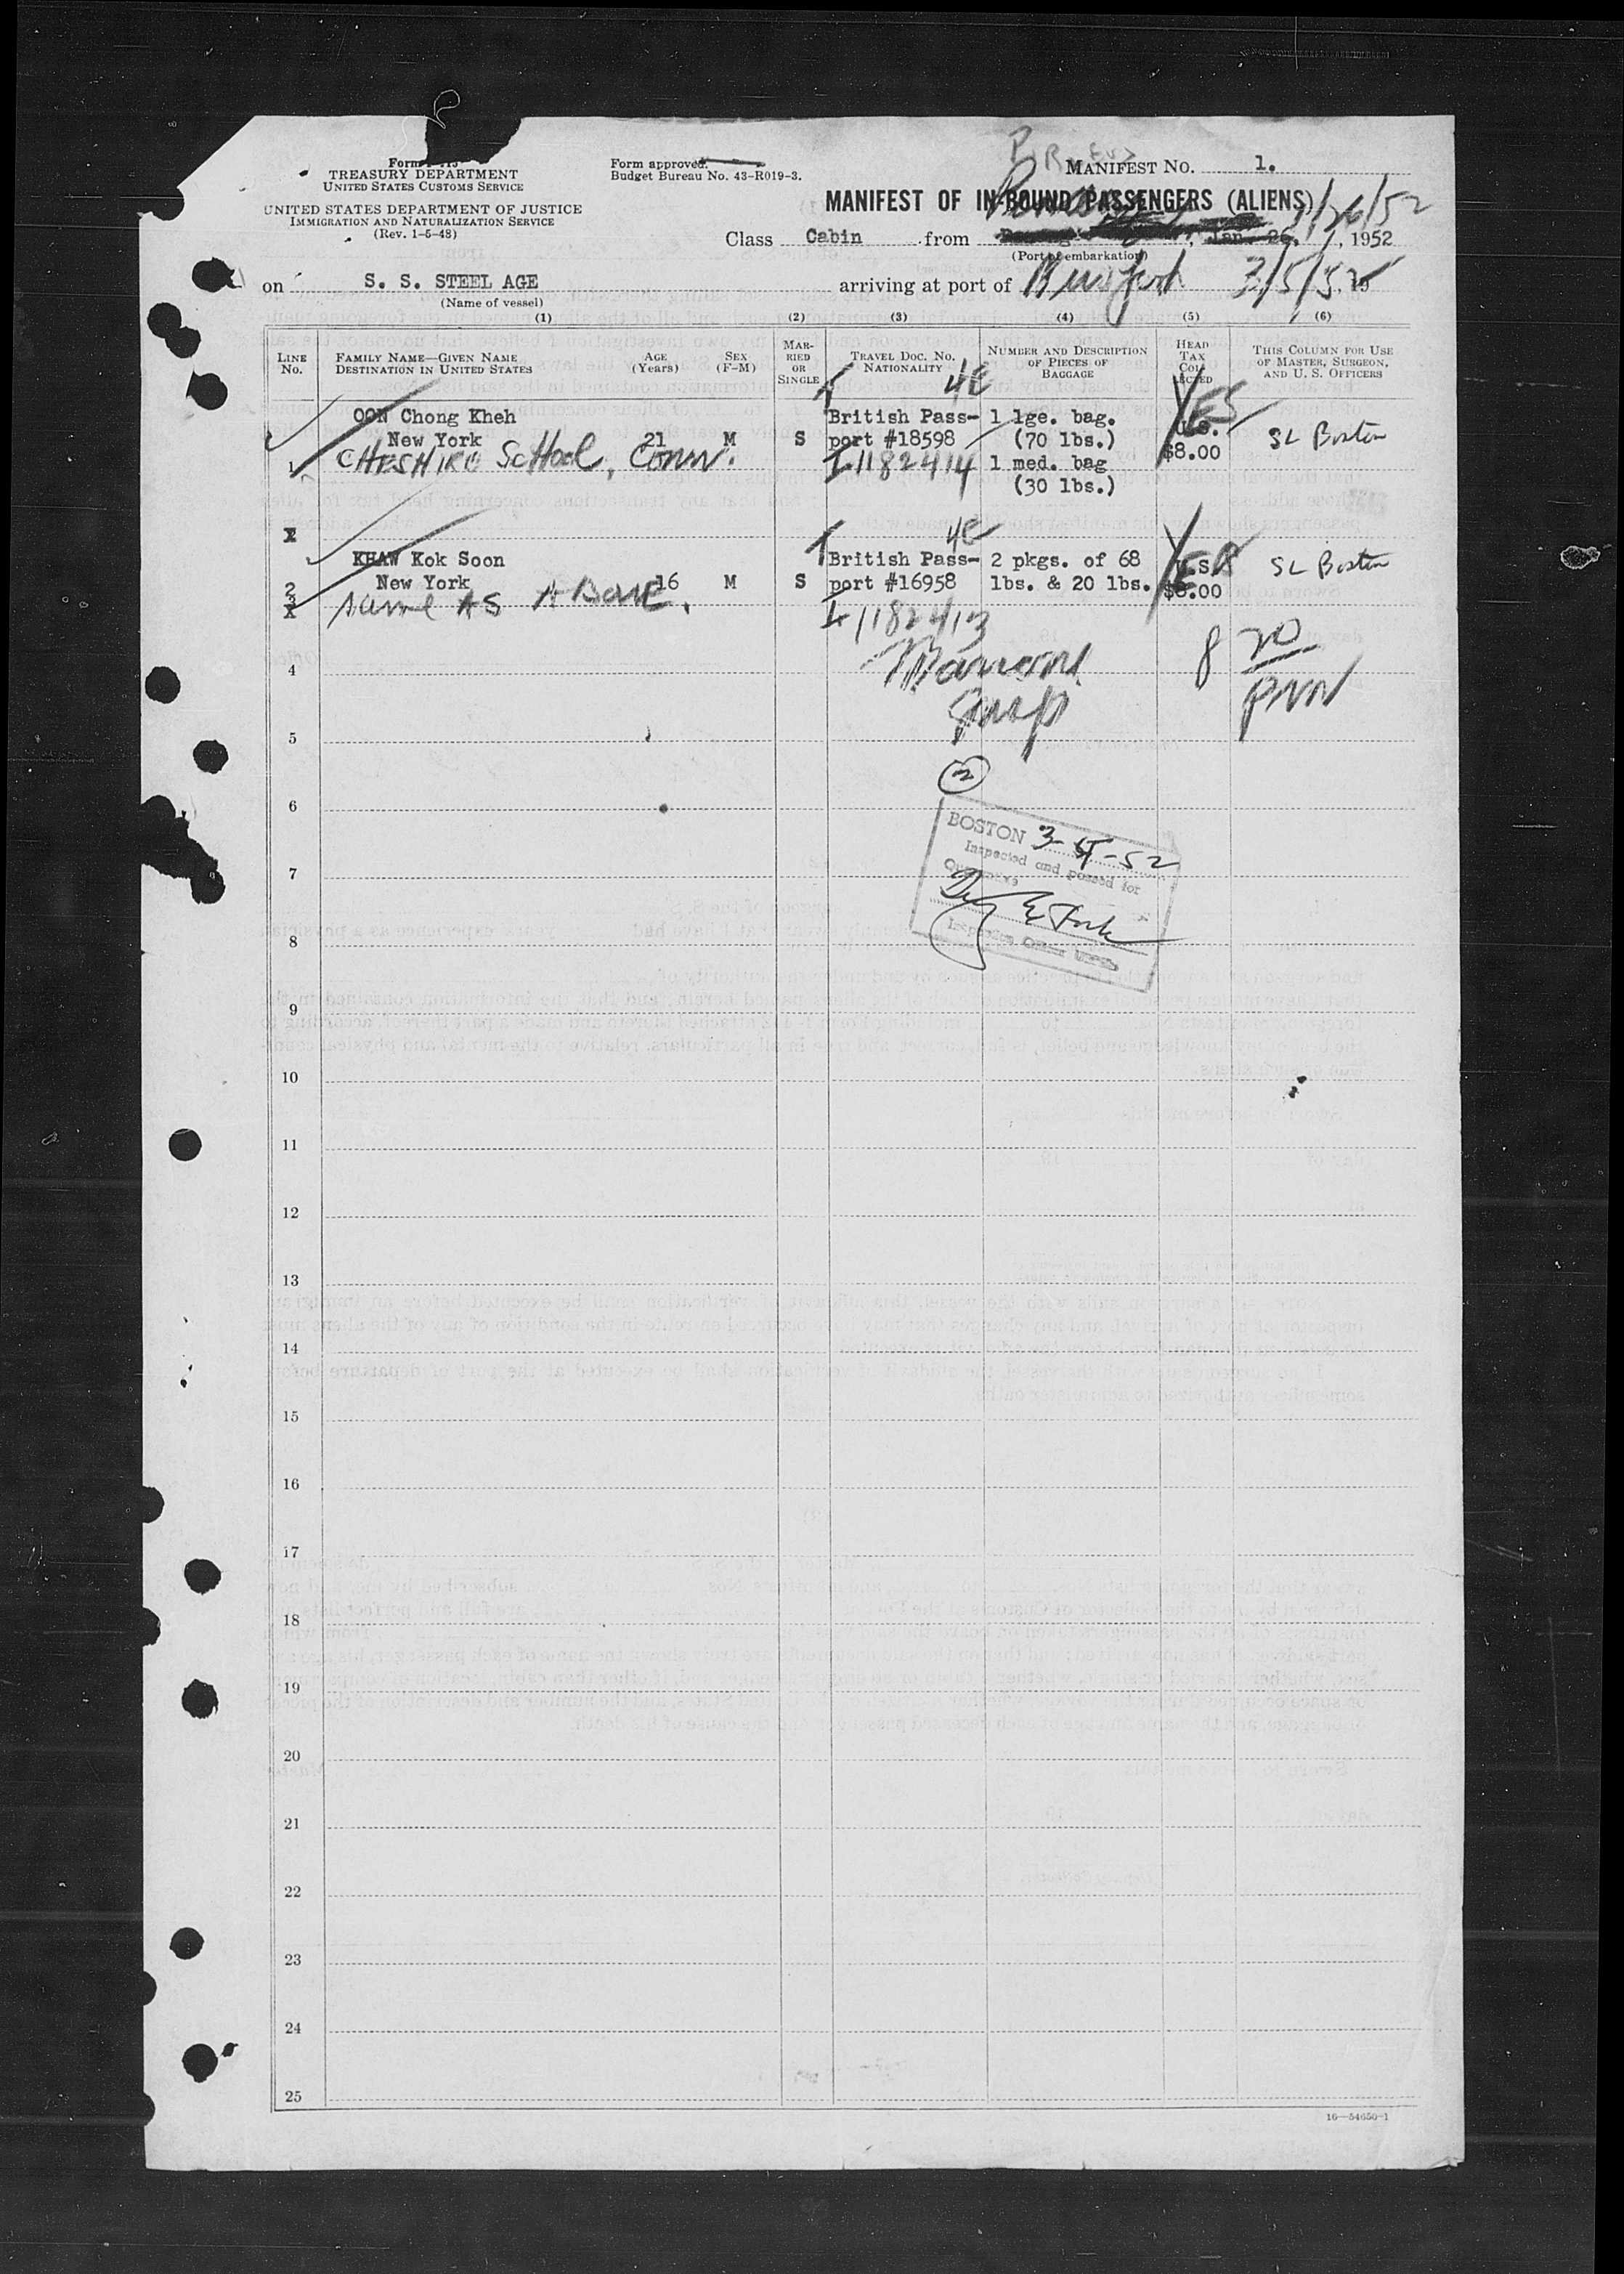 TREASURY DEPARTMENT
UNITED STATES CUSTOMS SERVICE
UNITED STATES DEPARTMENT OF JUSTICE
IMMIGRATION AND NATURALIZATION SERVICE
(Rev. 1-5-48)
Form approved.
Budget Bureau No. 43-R019-3.
MANIFEST NO. 1.
MANIFEST OF IN-BOUND PASSENGERS (ALIENS)
1/26/52
Class Cabin from Jan. 26, 1952
(Port of embarkation)
on S. S. STEEL AGE arriving at port of New York 3/5/52
(Name of vessel)
(1) (2) (3) (4) (5) (6)
LINE No.
FAMILY NAME—GIVEN NAME
DESTINATION IN UNITED STATES
AGE (Years)
SEX (F-M)
MARRIED OR SINGLE
TRAVEL DOC. NO.
NATIONALITY
NUMBER AND DESCRIPTION OF PIECES OF BAGGAGE
HEAD TAX COLLECTED
THIS COLUMN FOR USE OF MASTER, SURGEON, AND U. S. OFFICERS
4E YES
OON Chong Kheh British Pass- 1 lge. bag. U.S.
New York 21 M S port #18598 (70 lbs.) SL Boston
1 CHESHIRE SCHOOL, CONN. I1182414 1 med. bag $8.00
(30 lbs.)
4E
KHAW Kok Soon British Pass- 2 pkgs. of 68 U.S. YES SL Boston
2 New York 16 M S port #16958 lbs. & 20 lbs. $8.00
same AS ABOVE. I1182413
4
Insp
5
2
6
BOSTON 3-5-52
Inspected and passed for
7
Quarantine
8
9
10
11
12
13
14
15
16
17
18
19
20
21
22
23
24
25
16—54650-1